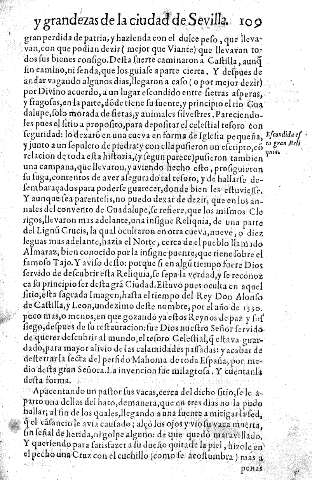 y grandezas de la ciudad de Sevilla. 109
gran perdida de patria, y hazienda con el dulce peso, que lleva-
van, con que podian dezir (mejor que Viante) que llevavan to-
dos sus bienes consigo. Desta suerte caminaron a Castilla, aunq̃
sin camino, ni senda, que los guiase a parte cierta. Y despues de
andar vagando algunos dias, llegaron a caso (o por mejor dezir)
por Divino acuerdo, a un lugar escondido entre sierras asperas,
y fragosas, en la parte, dõde tiene su fuente, y principio el rio Gua
dalupe, solo morada de fieras, y animales silvestres, Pareciendo-
les pues el sitio a proposito, para depositar el celestial tesoro con
seguridad: lo dexarõ en una cueva en forma de Iglesia pequeña,
y junto a un sepulcro de piedra: y con ella pusieron un escripto, cõ
relacion de toda esta historia, (y segun parece) pusieron tambien
una campana, que llevavan, y aviendo hecho esto, prosiguieron
su fuga, contentos de aver asegurado tal tesoro, y de hallarse de-
sembaraçados para poderse guarecer, donde bien les estuviesse.
Y aunque sea parentesis, no puedo dexar de dezir, que en los ana-
les del convento de Guadalupe, se refiere, que los mismos Cle
rigos, llevaron mas adelante, una insigne Reliquia, de una parte
del Lignũ Crucis, la qual ocultaron en otra cueva, nueve, o diez
leguas mas adelante, hazia el Norte, cerca de el pueblo llamado
Almaraz, bien conocido por la insigne puente, que tiene sobre el
famoso Tajo. Y aviso desto: porque si en algũ tiempo fuere Dios
servido de descubrir esta Reliquia, se sepa la verdad, y se reconoz
ca su principio ser desta grã Ciudad. Estuvo pues oculta en aquel
sitio, esta sagrada Imagen, hasta el tiempo del Rey Don Alonso
de Castilla, y Leon, undezimo deste nombre, por el año de 1330.
poco mas, o menos, en que gozando ya estos Reynos de paz y sos
siego, despues de su restauracion: fue Dios nuestro Señor servido
de querer descubrir al mundo, el tesoro Celestial, q̃ estava guar-
dado, para mayor alivio de las calamidades pasadas: y acabar de
desterrar la secta del perfido Mahoma de toda España, por me-
dio desta gran Señora. La invencion fue milagrosa. Y cuentanla
desta forma.
Apacentando un pastor sus vacas, cerca del dicho sitio, se le a-
parto una dellas del hato, de manera, que en tres dias no la pudo
hallar, al fin de los quales, llegando a una fuente a mitigar la sed,
q̃ el cãsancio le avia causado; alçò los ojos y viò su vaca muerta,
sin señal de herida, ni golpe alguno: de que quedò maravillado.
Y queriendo para satisfazer a su dueño quitarle la piel, hizole en
el pecho una Cruz con el cuchillo (como se acostumbra) mas a
penas
Escondida es
ta gran Reli
quia.